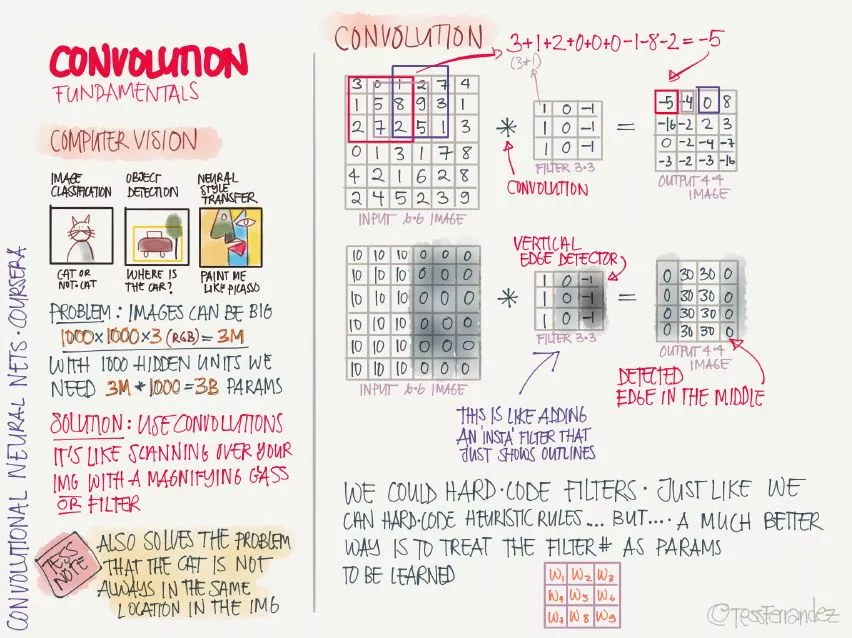 CONVOLUTION
FUNDAMENTALS
COMPUTER VISION
IMAGE
CLASSIFICATION
CAT OR
NOT-CAT
OBJECT
DETECTION
WHERE IS
THE CAR?
NEURAL
STYLE
TRANSFER
PAINT ME
LIKE PICASSO
PROBLEM: IMAGES CAN BE BIG
1000×1000×3 (RGB) = 3M
WITH 1000 HIDDEN UNITS WE
NEED 3M * 1000 = 3B PARAMS
SOLUTION: USE CONVOLUTIONS
IT'S LIKE SCANNING OVER YOUR
IMG WITH A MAGNIFYING GASS
OR FILTER
TESS
NOTE
ALSO SOLVES THE PROBLEM
THAT THE CAT IS NOT
ALWAYS IN THE SAME
LOCATION IN THE IMG
CONVOLUTIONAL NEURAL NETS · COURSERA
CONVOLUTION
3+1+2+0+0+0-1-8-2 = -5
(3*1)
3 0 1 2 7 4
1 5 8 9 3 1
2 7 2 5 1 3
0 1 3 1 7 8
4 2 1 6 2 8
2 4 5 2 3 9
INPUT 6·6 IMAGE
*
CONVOLUTION
1 0 -1
1 0 -1
1 0 -1
FILTER 3·3
=
-5 -4 0 8
-16 -2 2 3
0 -2 -4 -7
-3 -2 -3 -16
OUTPUT 4·4
IMAGE
10 10 10 0 0 0
10 10 10 0 0 0
10 10 10 0 0 0
10 10 10 0 0 0
10 10 10 0 0 0
10 10 10 0 0 0
INPUT 6·6 IMAGE
*
VERTICAL
EDGE DETECTOR
1 0 -1
1 0 -1
1 0 -1
FILTER 3·3
=
0 30 30 0
0 30 30 0
0 30 30 0
0 30 30 0
OUTPUT 4·4
IMAGE
THIS IS LIKE ADDING
AN 'INSTA' FILTER THAT
JUST SHOWS OUTLINES
DETECTED
EDGE IN THE MIDDLE
WE COULD HARD·CODE FILTERS · JUST LIKE WE
CAN HARD·CODE HEURISTIC RULES... BUT.... A MUCH BETTER
WAY IS TO TREAT THE FILTER # AS PARAMS
TO BE LEARNED
W1 W2 W3
W4 W5 W6
W7 W8 W9
©TessFerrandez